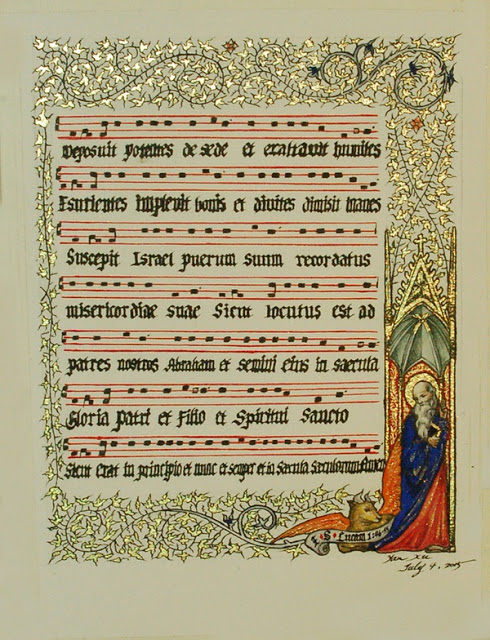 Deposuit potentes de sede et exaltavit humiles
Esurientes implevit bonis et divites dimisit inanes
Suscepit Israel puerum suum recordatus
misericordiae suae Sicut locutus est ad
patres nostros Abraham et semini eius in saecula
Gloria Patri et Filio et Spiritui Sancto
Sicut erat in principio et nunc et semper et in saecula saeculorum Amen
S. Lucam 1:46-
July 4, 2015